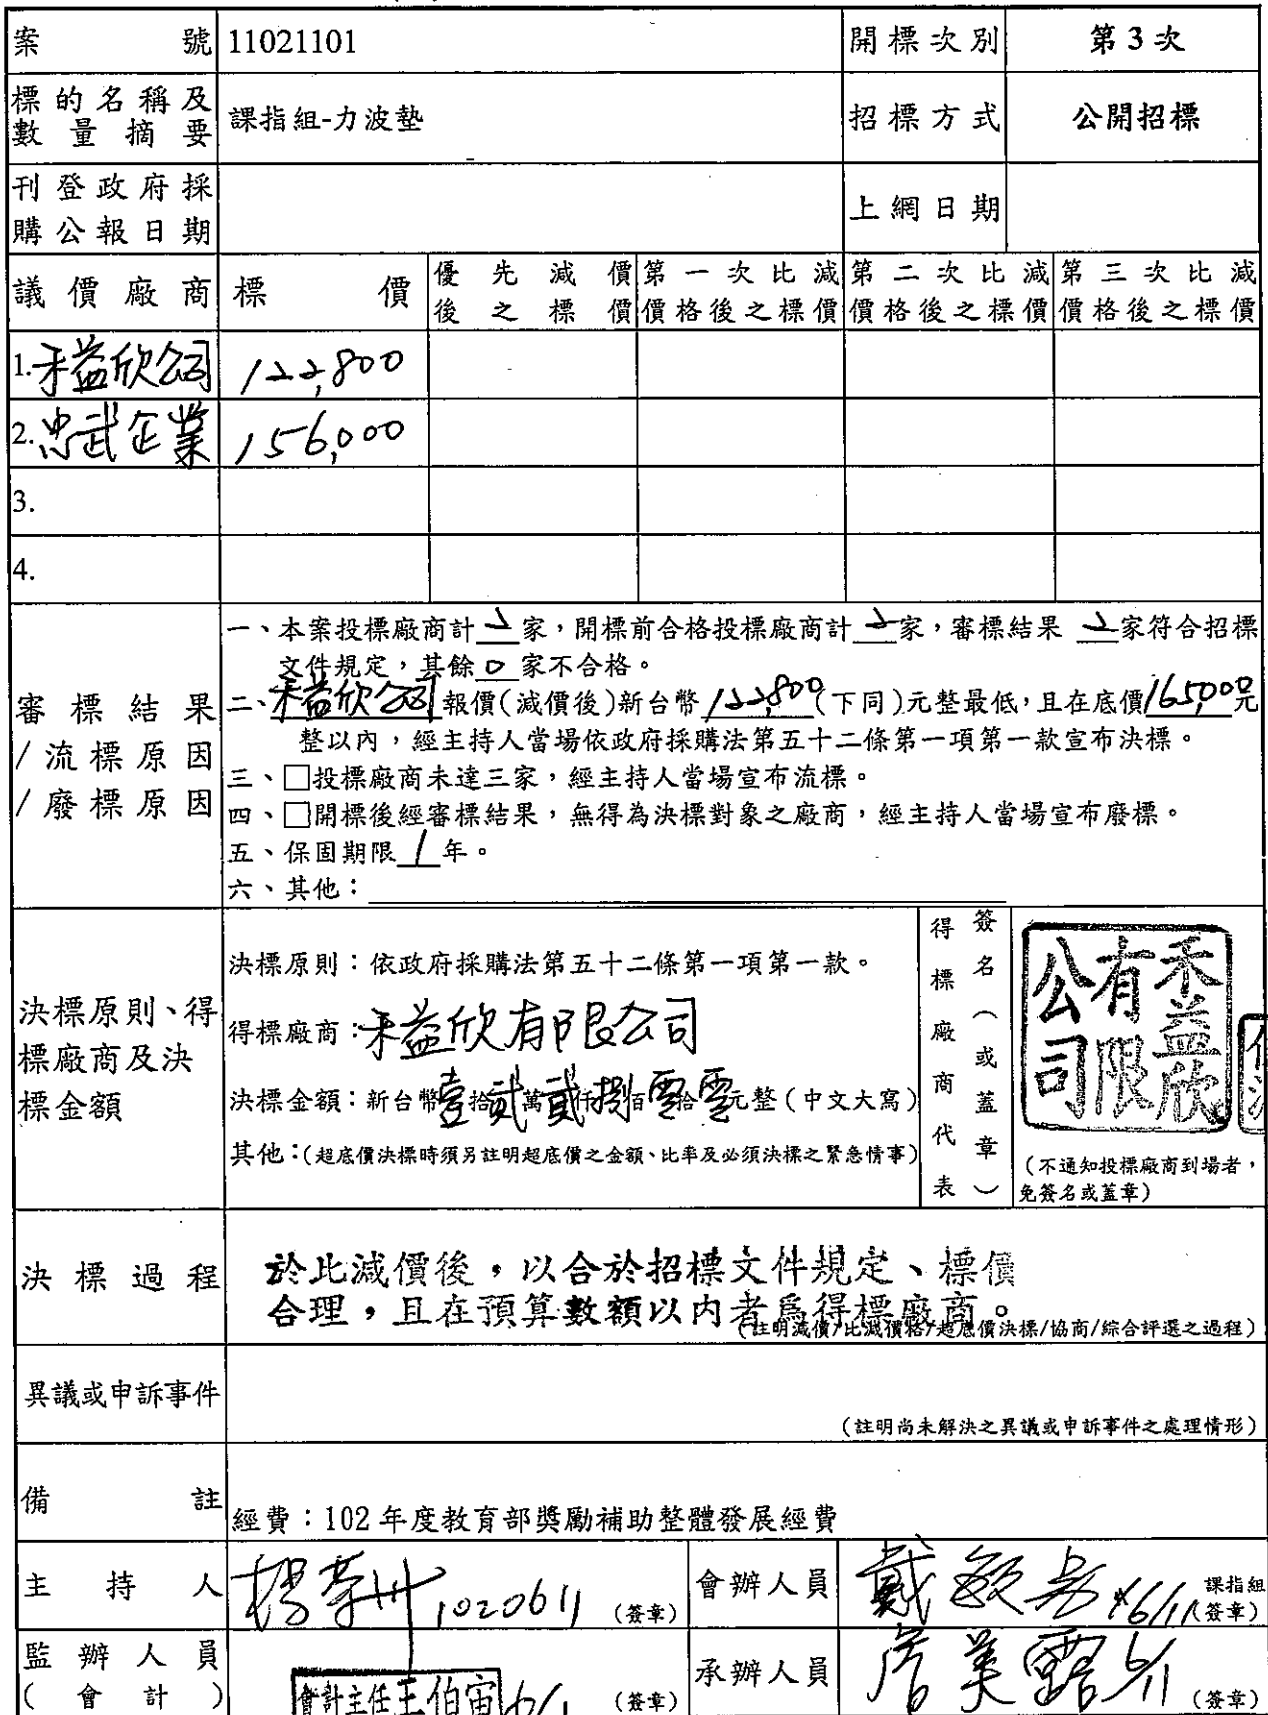 案號 11021101 開標次別 第3次
標的名稱及數量摘要 課指組-力波墊 招標方式 公開招標
刊登政府採購公報日期 上網日期
議價廠商 標價 優先減價後之標價 第一次比減價格後之標價 第二次比減價格後之標價 第三次比減價格後之標價
1.禾益欣公司 122,800
2.忠武企業 156,000
3.
4.
審標結果/流標原因/廢標原因
一、本案投標廠商計2家,開標前合格投標廠商計2家,審標結果 2家符合招標
文件規定,其餘0家不合格。
二、禾益欣公司報價(減價後)新台幣122,800(下同)元整最低,且在底價165,000元
整以內,經主持人當場依政府採購法第五十二條第一項第一款宣布決標。
三、□投標廠商未達三家,經主持人當場宣布流標。
四、□開標後經審標結果,無得為決標對象之廠商,經主持人當場宣布廢標。
五、保固期限1年。
六、其他:
決標原則、得標廠商及決標金額
決標原則:依政府採購法第五十二條第一項第一款。
得標廠商:禾益欣有限公司
決標金額:新台幣壹拾貳萬貳仟捌佰零拾零元整(中文大寫)
其他:(超底價決標時須另註明超底價之金額、比率及必須決標之緊急情事)
得標廠商代表簽名(或蓋章)
禾益欣有限公司
(不通知投標廠商到場者,
免簽名或蓋章)
決標過程
於比減價後,以合於招標文件規定、標價
合理,且在預算數額以內者為得標廠商。
(註明減價/比減價格/超底價決標/協商/綜合評選之過程)
異議或申訴事件
(註明尚未解決之異議或申訴事件之處理情形)
備註 經費:102年度教育部獎勵補助整體發展經費
主持人 1020611 (簽章) 會辦人員 戴敏 6/11 課指組(簽章)
監辦人員(會計) 會計主任王伯宙 (簽章) 承辦人員 詹美露 6/11 (簽章)